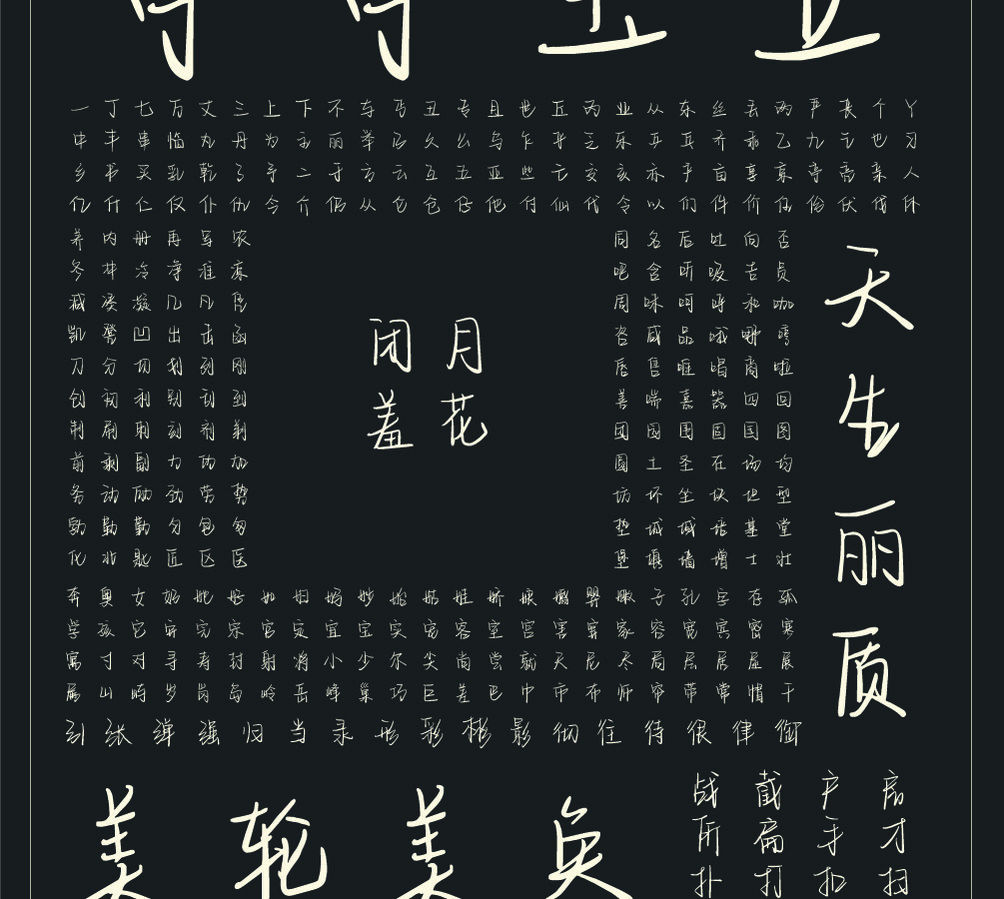 一丁七万丈三上下不与丐丑专且世丘丙业从东丝丢两严丧个丫
中丰串临丸丹为主丽举乃久么乌乍乎乏乐乒乓乔乖乙九乞也习
乡书买乱乾了予二于亏云互五亚些亡交亥亦产亩享京亭亮亲人
亿什仁仅仆仇今介仍从仓仔他付仙代令以们件价任份伏伐休
养内册再写农
冬冲冷净准凉
减凑凝几凡凭
凯凳凹出击函
刀分切划列刚
创初利别刮到
制刷刺刻剂剃
前剩副力功加
务动励劲劳势
勃勤勺勿包匆
化北匙匠区医
同名后吐向否
吧含听吸告员
周味呵呼和咖
咨咸品哦哪哨
唇售唯唱商啦
善喘喜器四回
团园围固国图
圆土圣在场均
坊坏坐块坦型
垫城域培基堂
堡堰墙增士壮
闭月
羞花
天生丽质
奔奥女奶她好如妇妈妙姚姑姓娇娘婚婴嫩子孔字存孤
学孩它宇完宋官定宜宝实宠客室宫害宴家容宽宾密寒
寓寸对寻寿封射将小少尔尖尚尝就尤尼尽局层居屋展
属山崎岁岗岛岭岳峰巢巧巨差巴巾市布师帘带常帽干
引张弹强归当录形彩彬影彻往待很律御
战截户房
所扁手才
扑打扣扫
美轮美奂